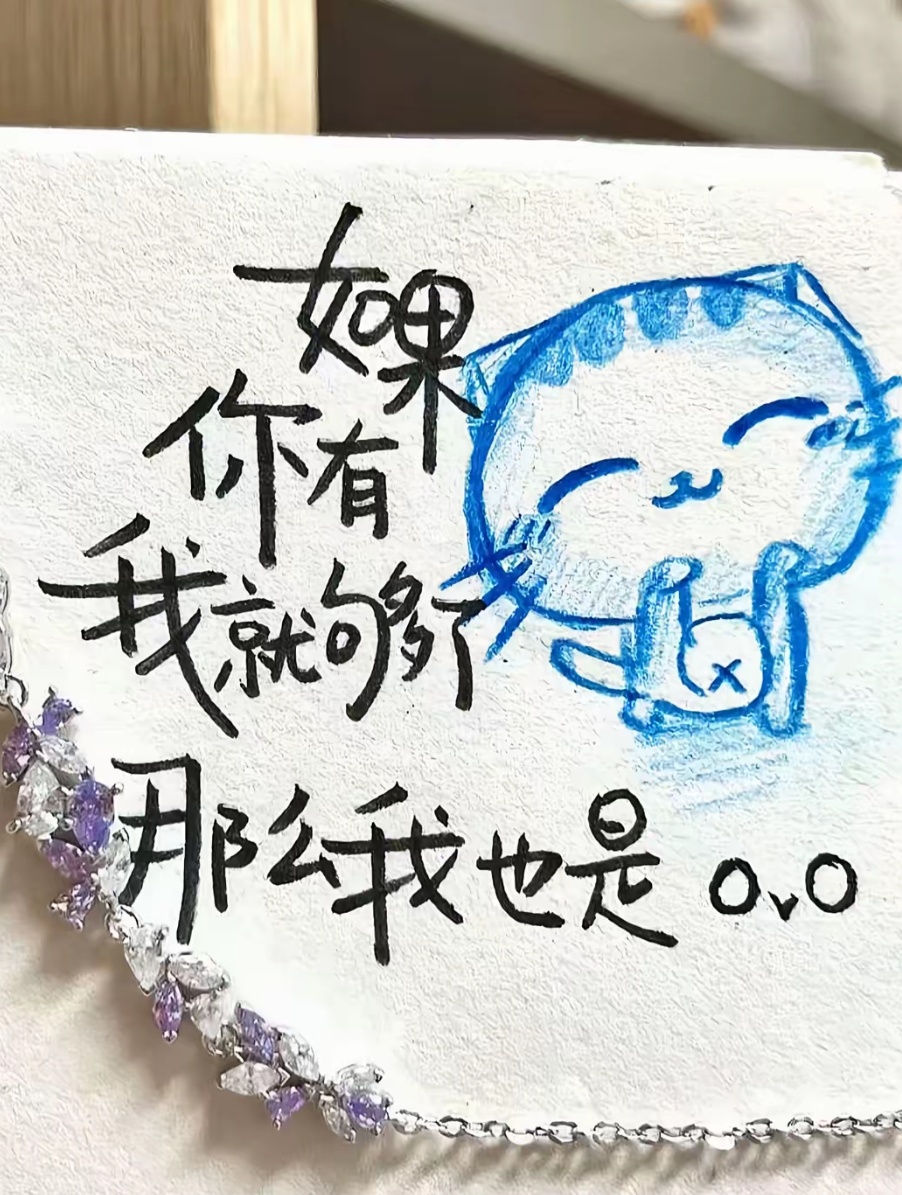 如果
你有
我就够了
那么我也是 0v0